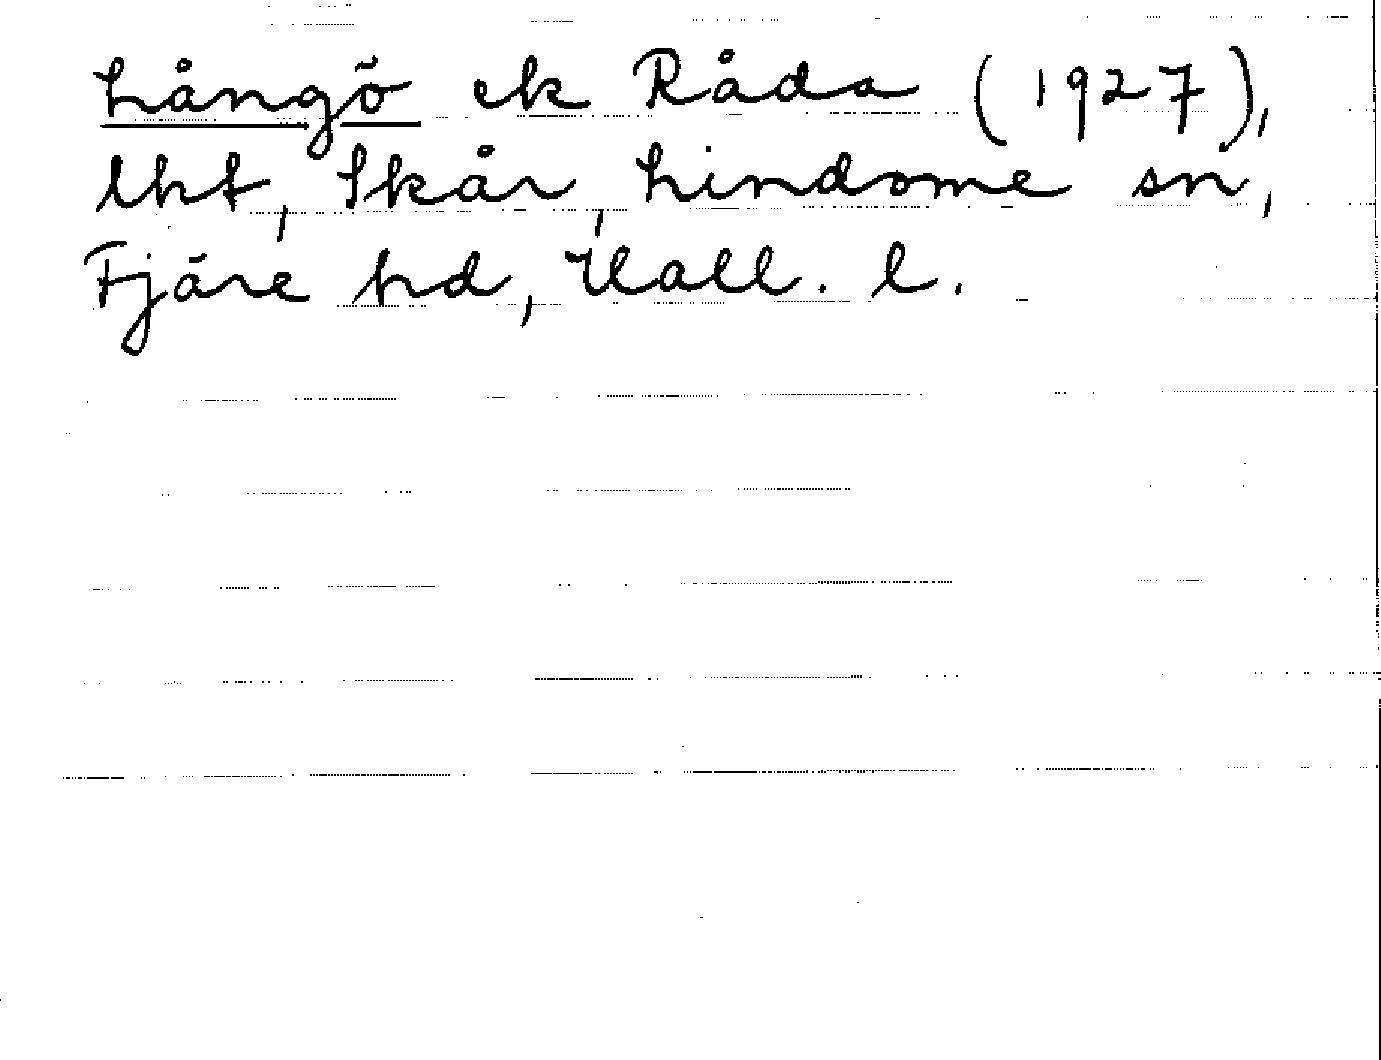 Långö ek Råda (1927),
lht, Skår, Lindome sn,
Fjäre hd, Hall. l.